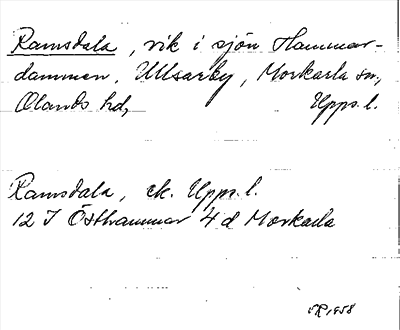 Ramsdala, vik i sjön Hammar-
dammen, Ullsarby, Morkarla sn,
Olands hd, Upps. l.
Ramsdala, ek. Upps. l.
12 I Östhammar 4 d Morkarla
1958